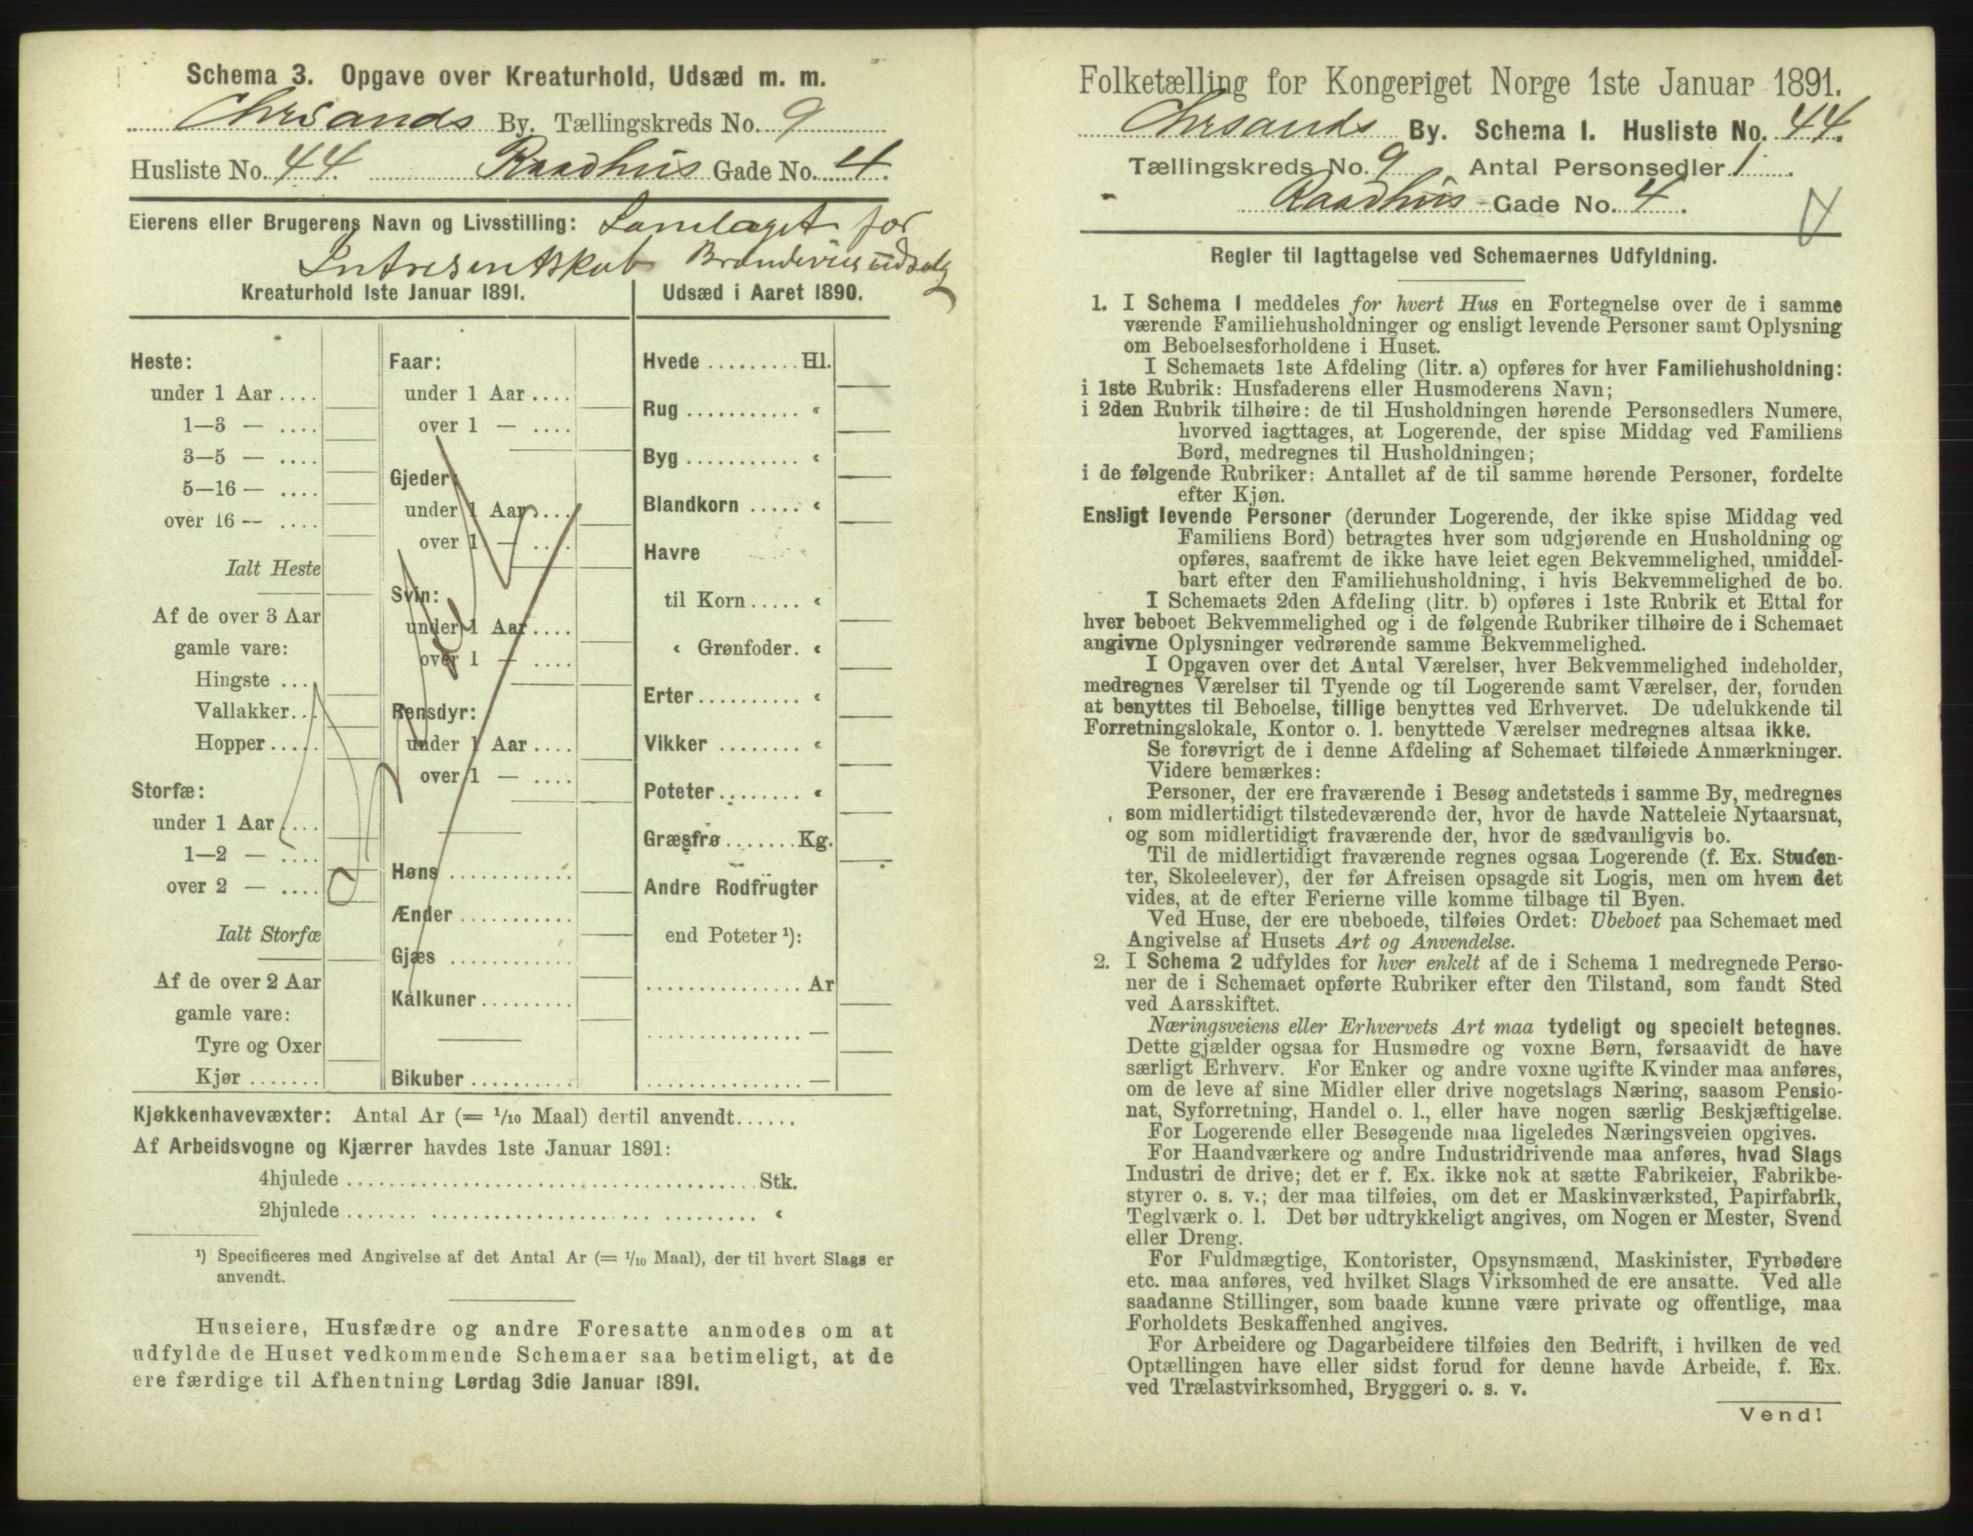 Schema 3. Opgave over Kreaturhold, Udsæd m. m.
Chrsands By. Tællingskreds No. 9
Husliste No. 44. Raadhus Gade No. 4.
Eierens eller Brugerens Navn og Livsstilling: Samlaget for
Intresentskab Brændevins udsalg
Kreaturhold 1ste Januar 1891. Udsæd i Aaret 1890.
Heste:
under 1 Aar ....
1—3 — ....
3—5 — ....
5—16 — ....
over 16 — ....
Ialt Heste
Af de over 3 Aar
gamle vare:
Hingste ....
Vallakker...
Hopper.....
Storfæ:
under 1 Aar ....
1—2 — ....
over 2 — ....
Ialt Storfæ
Af de over 2 Aar
gamle vare:
Tyre og Oxer
Kjør .......
Faar:
under 1 Aar ....
over 1 — ....
Gjeder:
under 1 Aar ....
over 1 — ....
Svin:
under 1 Aar ....
over 1 — ....
Rensdyr:
under 1 Aar ....
over 1 — ....
Høns ............
Ænder ...........
Gjæs ............
Kalkuner .........
Bikuber ..........
Hvede ......... Hl.
Rug ........... "
Byg ........... "
Blandkorn ..... "
Havre
til Korn ..... "
" Grønfoder. "
Erter .......... "
Vikker ......... "
Poteter ........ "
Græsfrø ....... Kg.
Andre Rodfrugter
end Poteter ¹):
............... Ar
............... —
............... —
Kjøkkenhavevæxter: Antal Ar (= 1/10 Maal) dertil anvendt......
Af Arbeidsvogne og Kjærrer havdes 1ste Januar 1891:
4hjulede ..................................... Stk.
2hjulede ..................................... "
¹) Specificeres med Angivelse af det Antal Ar (= 1/10 Maal), der til hvert Slags er
anvendt.
Huseiere, Husfædre og andre Foresatte anmodes om at
udfylde de Huset vedkommende Schemaer saa betimeligt, at de
ere færdige til Afhentning Lørdag 3die Januar 1891.
Folketælling for Kongeriget Norge 1ste Januar 1891.
Chrsands By. Schema 1. Husliste No. 44.
Tællingskreds No. 9 Antal Personsedler 1.
Raadhus - Gade No. 4.
Regler til Iagttagelse ved Schemaernes Udfyldning.
1. I Schema 1 meddeles for hvert Hus en Fortegnelse over de i samme
værende Familiehusholdninger og ensligt levende Personer samt Oplysning
om Beboelsesforholdene i Huset.
I Schemaets 1ste Afdeling (litr. a) opføres for hver Familiehusholdning:
i 1ste Rubrik: Husfaderens eller Husmoderens Navn;
i 2den Rubrik tilhøire: de til Husholdningen hørende Personsedlers Numere,
hvorved iagttages, at Logerende, der spise Middag ved Familiens
Bord, medregnes til Husholdningen;
i de følgende Rubriker: Antallet af de til samme hørende Personer, fordelte
efter Kjøn.
Ensligt levende Personer (derunder Logerende, der ikke spise Middag ved
Familiens Bord) betragtes hver som udgjørende en Husholdning og
opføres, saafremt de ikke have leiet egen Bekvemmelighed, umiddel-
bart efter den Familiehusholdning, i hvis Bekvemmelighed de bo.
I Schemaets 2den Afdeling (litr. b) opføres i 1ste Rubrik et Ettal for
hver beboet Bekvemmelighed og i de følgende Rubriker tilhøire de i Schemaet
angivne Oplysninger vedrørende samme Bekvemmelighed.
I Opgaven over det Antal Værelser, hver Bekvemmelighed indeholder,
medregnes Værelser til Tyende og til Logerende samt Værelser, der, foruden
at benyttes til Beboelse, tillige benyttes ved Erhvervet. De udelukkende til
Forretningslokale, Kontor o. l. benyttede Værelser medregnes altsaa ikke.
Se forøvrigt de i denne Afdeling af Schemaet tilføiede Anmærkninger.
Videre bemærkes:
Personer, der ere fraværende i Besøg andetsteds i samme By, medregnes
som midlertidigt tilstedeværende der, hvor de havde Natteleie Nytaarsnat,
og som midlertidigt fraværende der, hvor de sædvanligvis bo.
Til de midlertidigt fraværende regnes ogsaa Logerende (f. Ex. Studen-
ter, Skoleelever), der før Afreisen opsagde sit Logis, men om hvem det
vides, at de efter Ferierne ville komme tilbage til Byen.
Ved Huse, der ere ubeboede, tilføies Ordet: Ubeboet paa Schemaet med
Angivelse af Husets Art og Anvendelse.
2. I Schema 2 udfyldes for hver enkelt af de i Schema 1 medregnede Perso-
ner de i Schemaet opførte Rubriker efter den Tilstand, som fandt Sted
ved Aarsskiftet.
Næringsveiens eller Erhvervets Art maa tydeligt og specielt betegnes.
Dette gjælder ogsaa for Husmødre og voxne Børn, forsaavidt de have
særligt Erhverv. For Enker og andre voxne ugifte Kvinder maa anføres,
om de leve af sine Midler eller drive nogetslags Næring, saasom Pensio-
nat, Syforretning, Handel o. l., eller have nogen særlig Beskjæftigelse.
For Logerende eller Besøgende maa ligeledes Næringsveien opgives.
For Haandværkere og andre Industridrivende maa anføres, hvad Slags
Industri de drive; det er f. Ex. ikke nok at sætte Fabrikeier, Fabrikbe-
styrer o. s. v.; der maa tilføies, om det er Maskinværksted, Papirfabrik,
Teglværk o. l. Det bør udtrykkeligt angives, om Nogen er Mester, Svend
eller Dreng.
For Fuldmægtige, Kontorister, Opsynsmænd, Maskinister, Fyrbødere
etc. maa anføres, ved hvilket Slags Virksomhed de ere ansatte. Ved alle
saadanne Stillinger, som baade kunne være private og offentlige, maa
Forholdets Beskaffenhed angives.
For Arbeidere og Dagarbeidere tilføies den Bedrift, i hvilken de ved
Optællingen have eller sidst forud for denne havde Arbeide, f. Ex.
ved Trælastvirksomhed, Bryggeri o. s. v.
Vend!